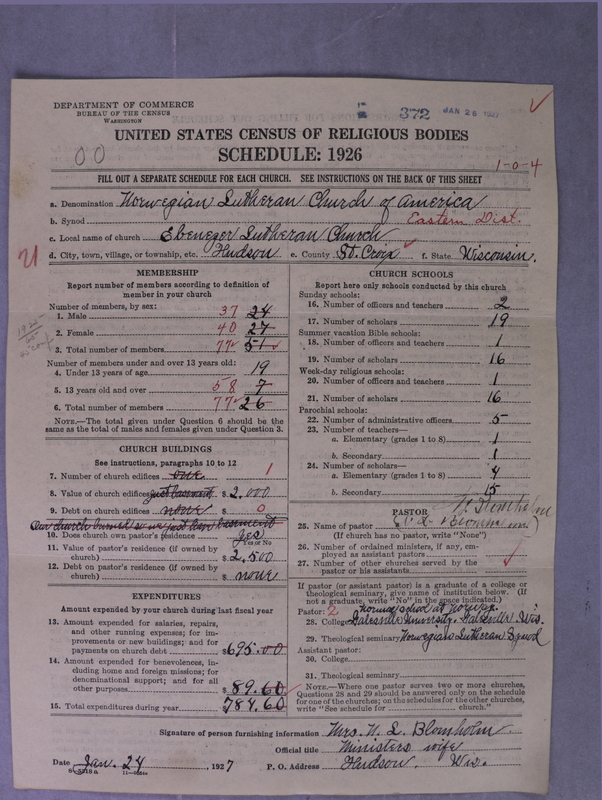 DEPARTMENT OF COMMERCE
BUREAU OF THE CENSUS
WASHINGTON
372 JAN 26 1927
UNITED STATES CENSUS OF RELIGIOUS BODIES
00
SCHEDULE: 1926
1-0-4
FILL OUT A SEPARATE SCHEDULE FOR EACH CHURCH. SEE INSTRUCTIONS ON THE BACK OF THIS SHEET
a. Denomination Norwegian Lutheran Church of America
b. Synod Eastern Dist.
c. Local name of church Ebenezer Lutheran Church
d. City, town, village, or township, etc. Hudson e. County St. Croix f. State Wisconsin.
MEMBERSHIP
Report number of members according to definition of
member in your church
Number of members, by sex:
1. Male 37 24
2. Female 40 27
3. Total number of members 77 51
Number of members under and over 13 years old:
4. Under 13 years of age 19
5. 13 years old and over 58 7
6. Total number of members 77 26
NOTE.—The total given under Question 6 should be the
same as the total of males and females given under Question 3.
CHURCH BUILDINGS
See instructions, paragraphs 10 to 12
7. Number of church edifices one 1
8. Value of church edifices just basement $ 2,000
9. Debt on church edifices none $ 0
Our church burned so we just have basement
10. Does church own pastor's residence yes
Yes or No
11. Value of pastor's residence (if owned by
church) $ 2,500
12. Debt on pastor's residence (if owned by
church) $ none
EXPENDITURES
Amount expended by your church during last fiscal year
13. Amount expended for salaries, repairs,
and other running expenses; for im-
provements or new buildings; and for
payments on church debt $ 695.00
14. Amount expended for benevolences, in-
cluding home and foreign missions; for
denominational support; and for all
other purposes $ 89.60
15. Total expenditures during year 784.60
CHURCH SCHOOLS
Report here only schools conducted by this church
Sunday schools:
16. Number of officers and teachers 2
17. Number of scholars 19
Summer vacation Bible schools:
18. Number of officers and teachers 1
19. Number of scholars 16
Week-day religious schools:
20. Number of officers and teachers 1
21. Number of scholars 16
Parochial schools:
22. Number of administrative officers 5
23. Number of teachers—
a. Elementary (grades 1 to 8) 1
b. Secondary 1
24. Number of scholars—
a. Elementary (grades 1 to 8) 4
b. Secondary 15
PASTOR
25. Name of pastor
(If church has no pastor, write "None")
26. Number of ordained ministers, if any, em-
ployed as assistant pastors
27. Number of other churches served by the
pastor or his assistants
If pastor (or assistant pastor) is a graduate of a college or
theological seminary, give name of institution below. (If
not a graduate, write "No" in the space indicated.)
Pastor: 2 Normal school at Norway.
28. College Galesville University. Galesville, Wis.
29. Theological seminary Norwegian Lutheran Synod
Assistant pastor:
30. College
31. Theological seminary
NOTE.—Where one pastor serves two or more churches,
Questions 28 and 29 should be answered only on the schedule
for one of the churches; on the schedules for the other churches,
write "See schedule for church."
Signature of person furnishing information Mrs. N. L. Blomholm.
Official title Ministers wife
Date Jan. 24, 1927 P. O. Address Hudson, Wis.